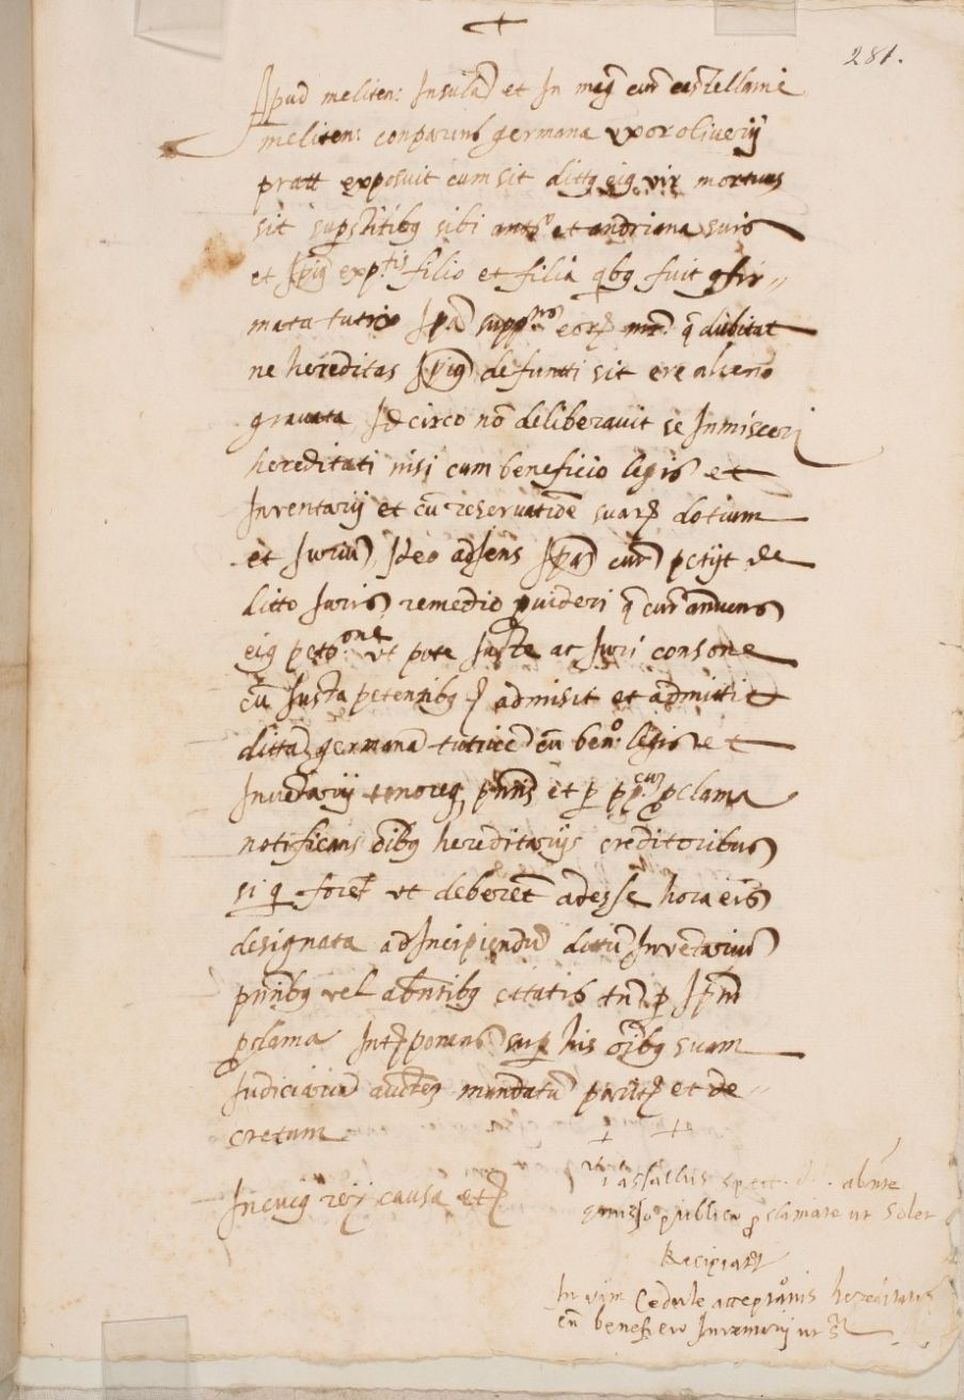 281.
Apud meliten: Insulã et In mag cur castellanie
meliten: conparens germana uxor oliverij
pratt exposuit cum sit dittq eiq vir mortuus
sit supstitibq sibi antº et andriana suis
et Ipiq exp.tis filio et filia qbq fuit gfir-
mata tutrix Ipa supp.ris q dubitat
ne hereditas Ipiq defuncti sit ere alieno
gravata Idcirco nõ deliberavit se Inmisceri
hereditati nisi cum beneficio legis et
Inventarij et cũ reservatiõe suarꝝ dotium
et Jurium Ideo adiens Ipã curã petijt de
ditto Juris remedio ꝓvideri q cur annuens
eiq petº.one ut pote Juste ac Juri consone
cũ Justa petentibq admisit et admitti
dittã germanã tutricẽ cũ benº legis et
Inventarij tenoreq pñtis et p pp.cum ꝓclama
notificans oĩbq hereditarijs creditoribus
si q foret ut deberẽt adesse hora eis
designata ad Incipiendũ dittũ Inventariũ
pñtibq vel abñtibq citatis tñ p Ipm
ꝓclama Interponens sup his oĩbq suam
Judiciariã auctẽ mandatũ pariter et de-
cretum
In cuiq rei causa etꝝ
absñte
publico ꝓclamate ut solet
Recipiatꝝ
In vim Cedule acceptãonis hereditatis
cũ beneficio Inventarij ut sª